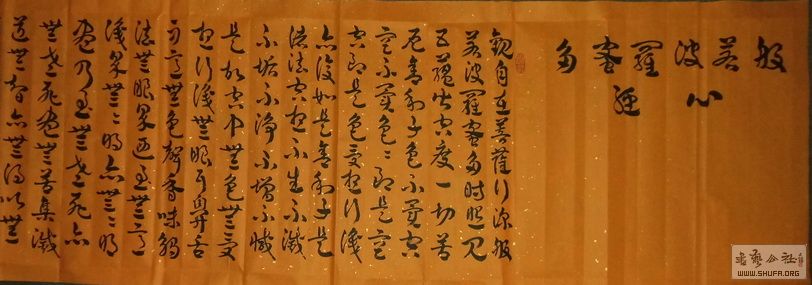 般若波羅蜜多
心經
觀自在菩薩行深般
若波羅蜜多時照見
五蘊皆空度一切苦
厄舍利子色不異空
空不異色〻即是空
空即是色受想行識
亦復如是舍利子是
諸法空想不生不滅
不垢不淨不增不減
是故空中無色無受
想行識無眼耳鼻舌
身意無色聲香味觸
法無眼界乃至無意
識界無〻明亦無〻明
盡乃至無老死亦
無老死盡無苦集滅
道無智亦無得以無
書藝公社
WWW.SHUFA.ORG